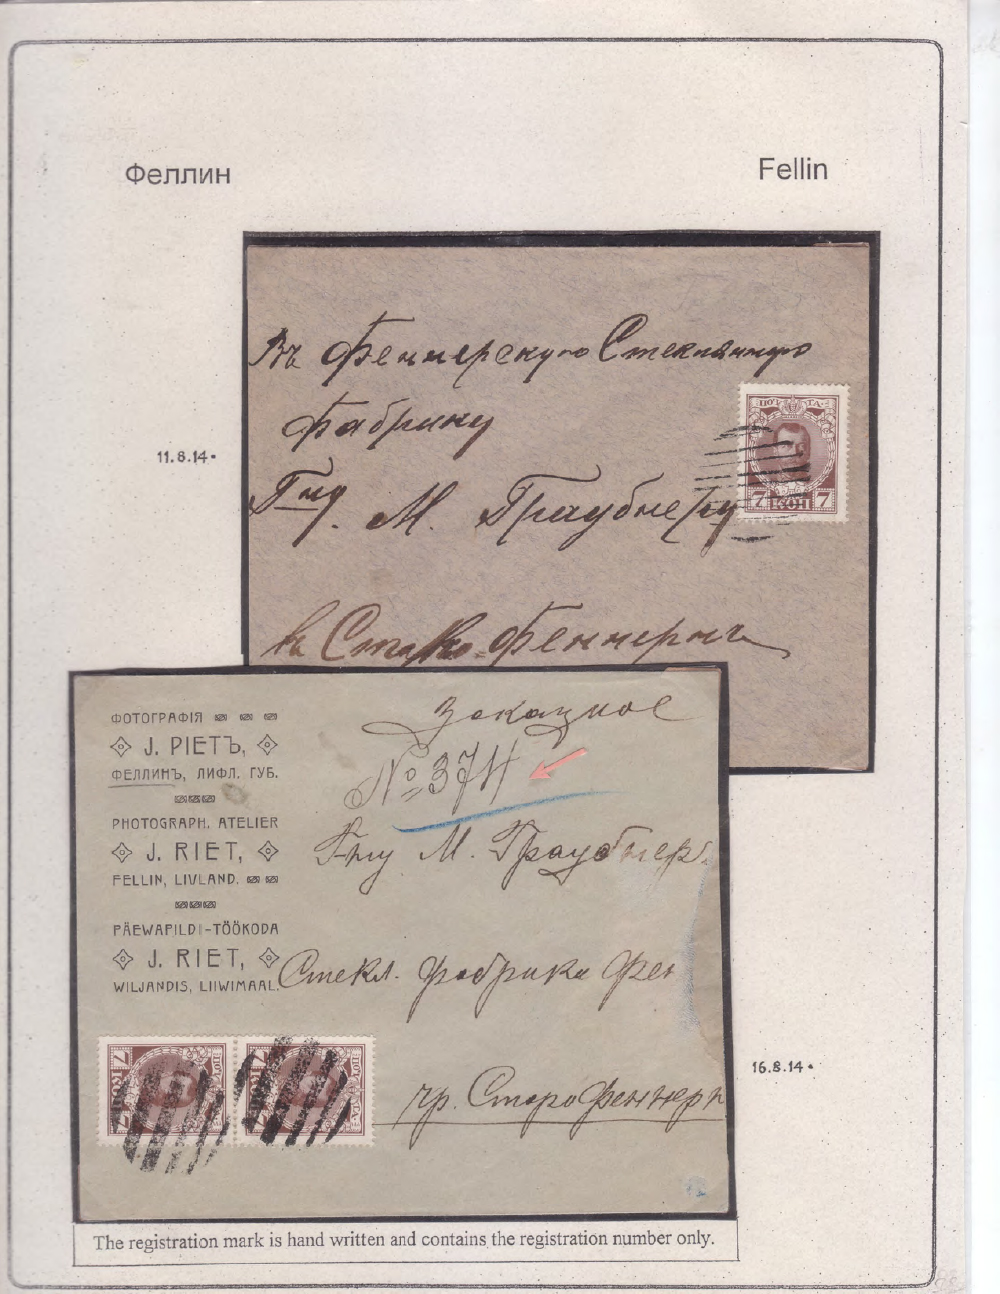 Феллин
Fellin
Въ Феннерскую Стеклянную
Фабрику
11.8.14•
Гну. М. Граубнеру
ПОЧТА
7 КОП 7
въ Старо-Феннернъ
Заказное
№ 374
ФОТОГРАФІЯ
J. РІЕТЪ,
ФЕЛЛИНЪ, ЛИФЛ. ГУБ.
PHOTOGRAPH. ATELIER
J. RIET,
FELLIN, LIVLAND.
PÄEWAPILDI-TÖÖKODA
J. RIET,
WILJANDIS, LIIWIMAAL.
Гну М. Граубнер.
Стекл. фабрика Фен
чр. Старо Феннернъ
16.8.14•
The registration mark is hand written and contains the registration number only.